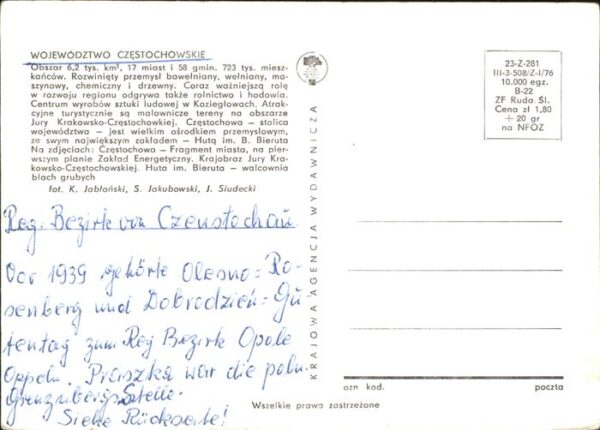 WOJEWÓDZTWO CZĘSTOCHOWSKIE
Obszar 6,2 tys. km², 17 miast i 58 gmin. 723 tys. miesz-
kańców. Rozwinięty przemysł bawełniany, wełniany, ma-
szynowy, chemiczny i drzewny. Coraz ważniejszą rolę
w rozwoju regionu odgrywa także rolnictwo i hodowla.
Centrum wyrobów sztuki ludowej w Koziegłowach. Atrak-
cyjne turystycznie są malownicze tereny na obszarze
Jury Krakowsko-Częstochowskiej. Częstochowa – stolica
województwa – jest wielkim ośrodkiem przemysłowym,
ze swym największym zakładem – Hutą im. B. Bieruta
Na zdjęciach: Częstochowa – Fragment miasta, na pier-
wszym planie Zakład Energetyczny. Krajobraz Jury Kra-
kowsko-Częstochowskiej. Huta im. Bieruta – walcownia
blach grubych
fot. K. Jabłoński, S. Jakubowski, J. Siudecki
Reg. Bezirk von Czenstochau
Vor 1939 gehörte Olesno = Ro-
senberg und Dobrodzień = Gu
tentag zum Reg Bezirk Opole
Oppeln. Praszka war die poln.
Siehe Rückseite!
KRAJOWA AGENCJA WYDAWNICZA
23-Z-281
III-3-508/Z-I/76
10.000 egz.
B-22
ZF Ruda Śl.
Cena zł 1,80
+ 20 gr
na NFOZ
ozn kod. poczta
Wszelkie prawa zastrzeżone